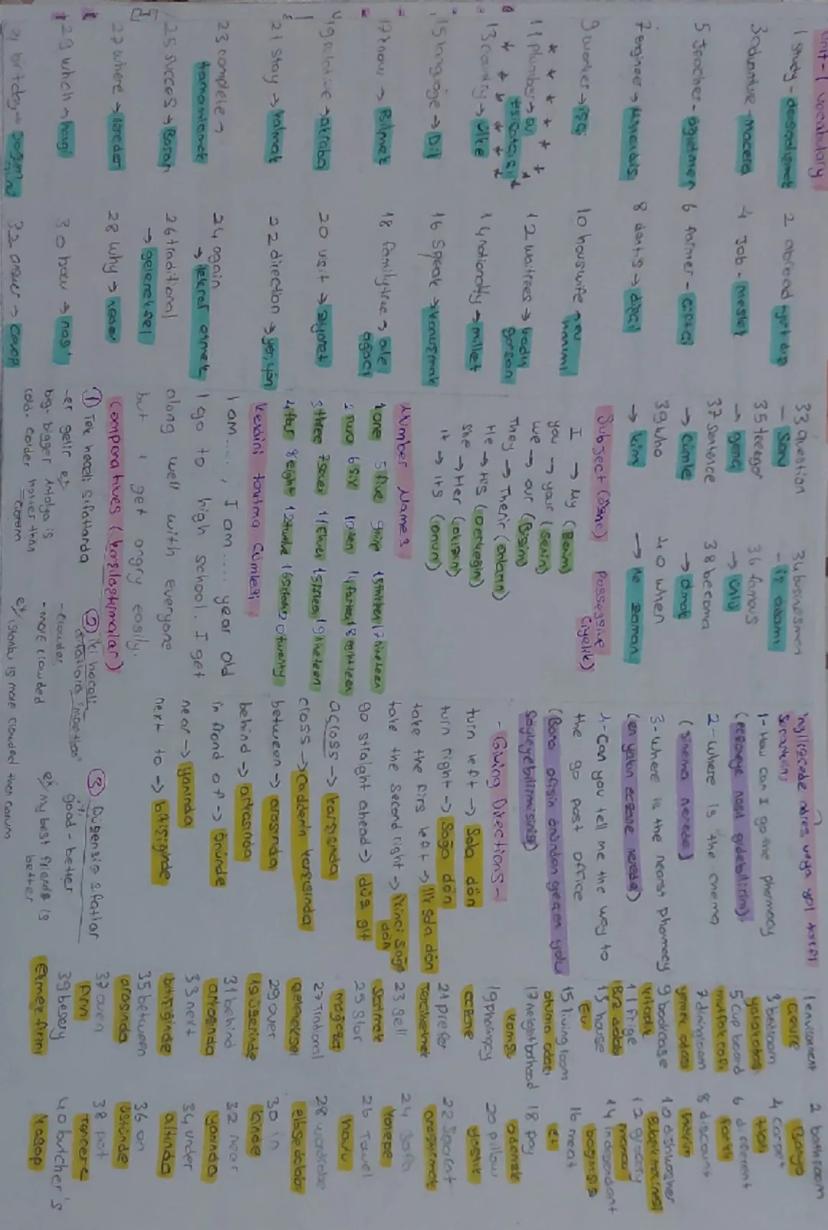 Unit-1 Vocabulary
2 abroad
3 adventure → macera
4 Job - meslek
5 teacher - öğretmen
6 farmer - çiftçi
7 engineer → Mühendis
8 dentis → dişçi
9 worker → işçi
10 housewife → ev hanımı
11 plumber → su tesisatçısı
12 waitress → kadın garson
13 country → ülke
14 nationality → millet
15 language → Dil
16 Speak → konuşmak
17 now → Bilmek
18 family tree → aile ağacı
19 relative → akraba
20 visit → ziyaret
21 stay → kalmak
22 direction → yer, yön
23 complete → tamamlamak
24 again → tekrar etmek
25 succes → Başarı
26 traditional → geleneksel
27 where → nereden
28 why → neden
29 which → hangi
30 how → nasıl
32 answer → cevap
33 question - Soru
34 busınesmen - iş adamı
35 teeager → genç
36 famous → ünlü
37 sentence → cümle
38 become → olmak
39 who → kim
40 when → Ne zaman
Subject (özne) Possessive (iyelik)
I → My (Benim)
you → your (senin)
we → our (Bizim)
They → Their (onların)
He → His (erkeğin)
She → Her (kızın)
it → its (onun)
Number Names
1 one 5 five 9 nine
2 two 6 six 10 ten
3 three 7 seven 15 fifteen 19 nineteen
4 four 8 eight 20 twenty
Kendini tanıtma cümlesi
I am...., I am.... year old
I go to high school. I get
along well with everyone
but I get angry easily.
Comperatives (karşılaştırmalar)
① Tek heceli sıfatlarda
-er gelir ex
big- bigger Antalya is
cold- colder hotter than
Çorum
② iki heceli
- crowded
- more crowded
ex/ İstanbul is more crowded then corum
③ Düzensiz sıfatlar
good - better
ex/ my best friends is
better
ingilizcede adres veya yol tarifi
1- How can I go the pharmacy
(eczaneye nasıl gidebilirim)
2- Where is the cinema
(sinema nerede)
3- where is the nearst pharmacy
(en yakın eczane nerede)
4- Can you tell me the way to
the go post office
(Bana ofisin önünden geçen yolu
söyleyebilirmisiniz)
- Giving Directions -
turn left → Sola dön
turn right → Sağa dön
take the firs left → ilk sola dön
take the second right → ikinci sağa dön
go straight ahead → düz git
across → karşısında
cross → caddenin karşısında
between → arasında
behind → arkasında
in frond of → önünde
near → yanında
next to → bitişiğinde
1 environment
Çevre
2 bathroom
Banyo
3 bedroom
yatak odası
4 carpet
Halı
5 Cup board
mutfak dolabı
6 different
farklı
7 diningroom
yemek odası
8 discount
indirim
9 bookcase
kitaplık
10 dishwasher
Bulaşık makinesi
11 frige
Buz dolabı
12 grocery
manav
13 house
Ev
14 independant
bağımsız
15 living room
oturma odası
16 meat
et
17 neighborhood
komşu
18 pay
ödemek
19 Pharmpcy
eczane
20 pillow
yastık
21 prefer
tercih etmek
22
23 sell
satmak
24 Sofa
kanepe
25 Stor
mağaza
26 Towel
havlu
27
geleneksel
28 wardrobe
elbise dolabı
29 over
üzerinde
30 in
içinde
31 behind
arkasında
32 near
yanında
33 next
bitişiğinde
34 under
altında
35 between
arasında
36 on
üstünde
37 oven
fırın
38 pot
tencere
39 bakery
Ekmek fırını
40 butcher's
kasap